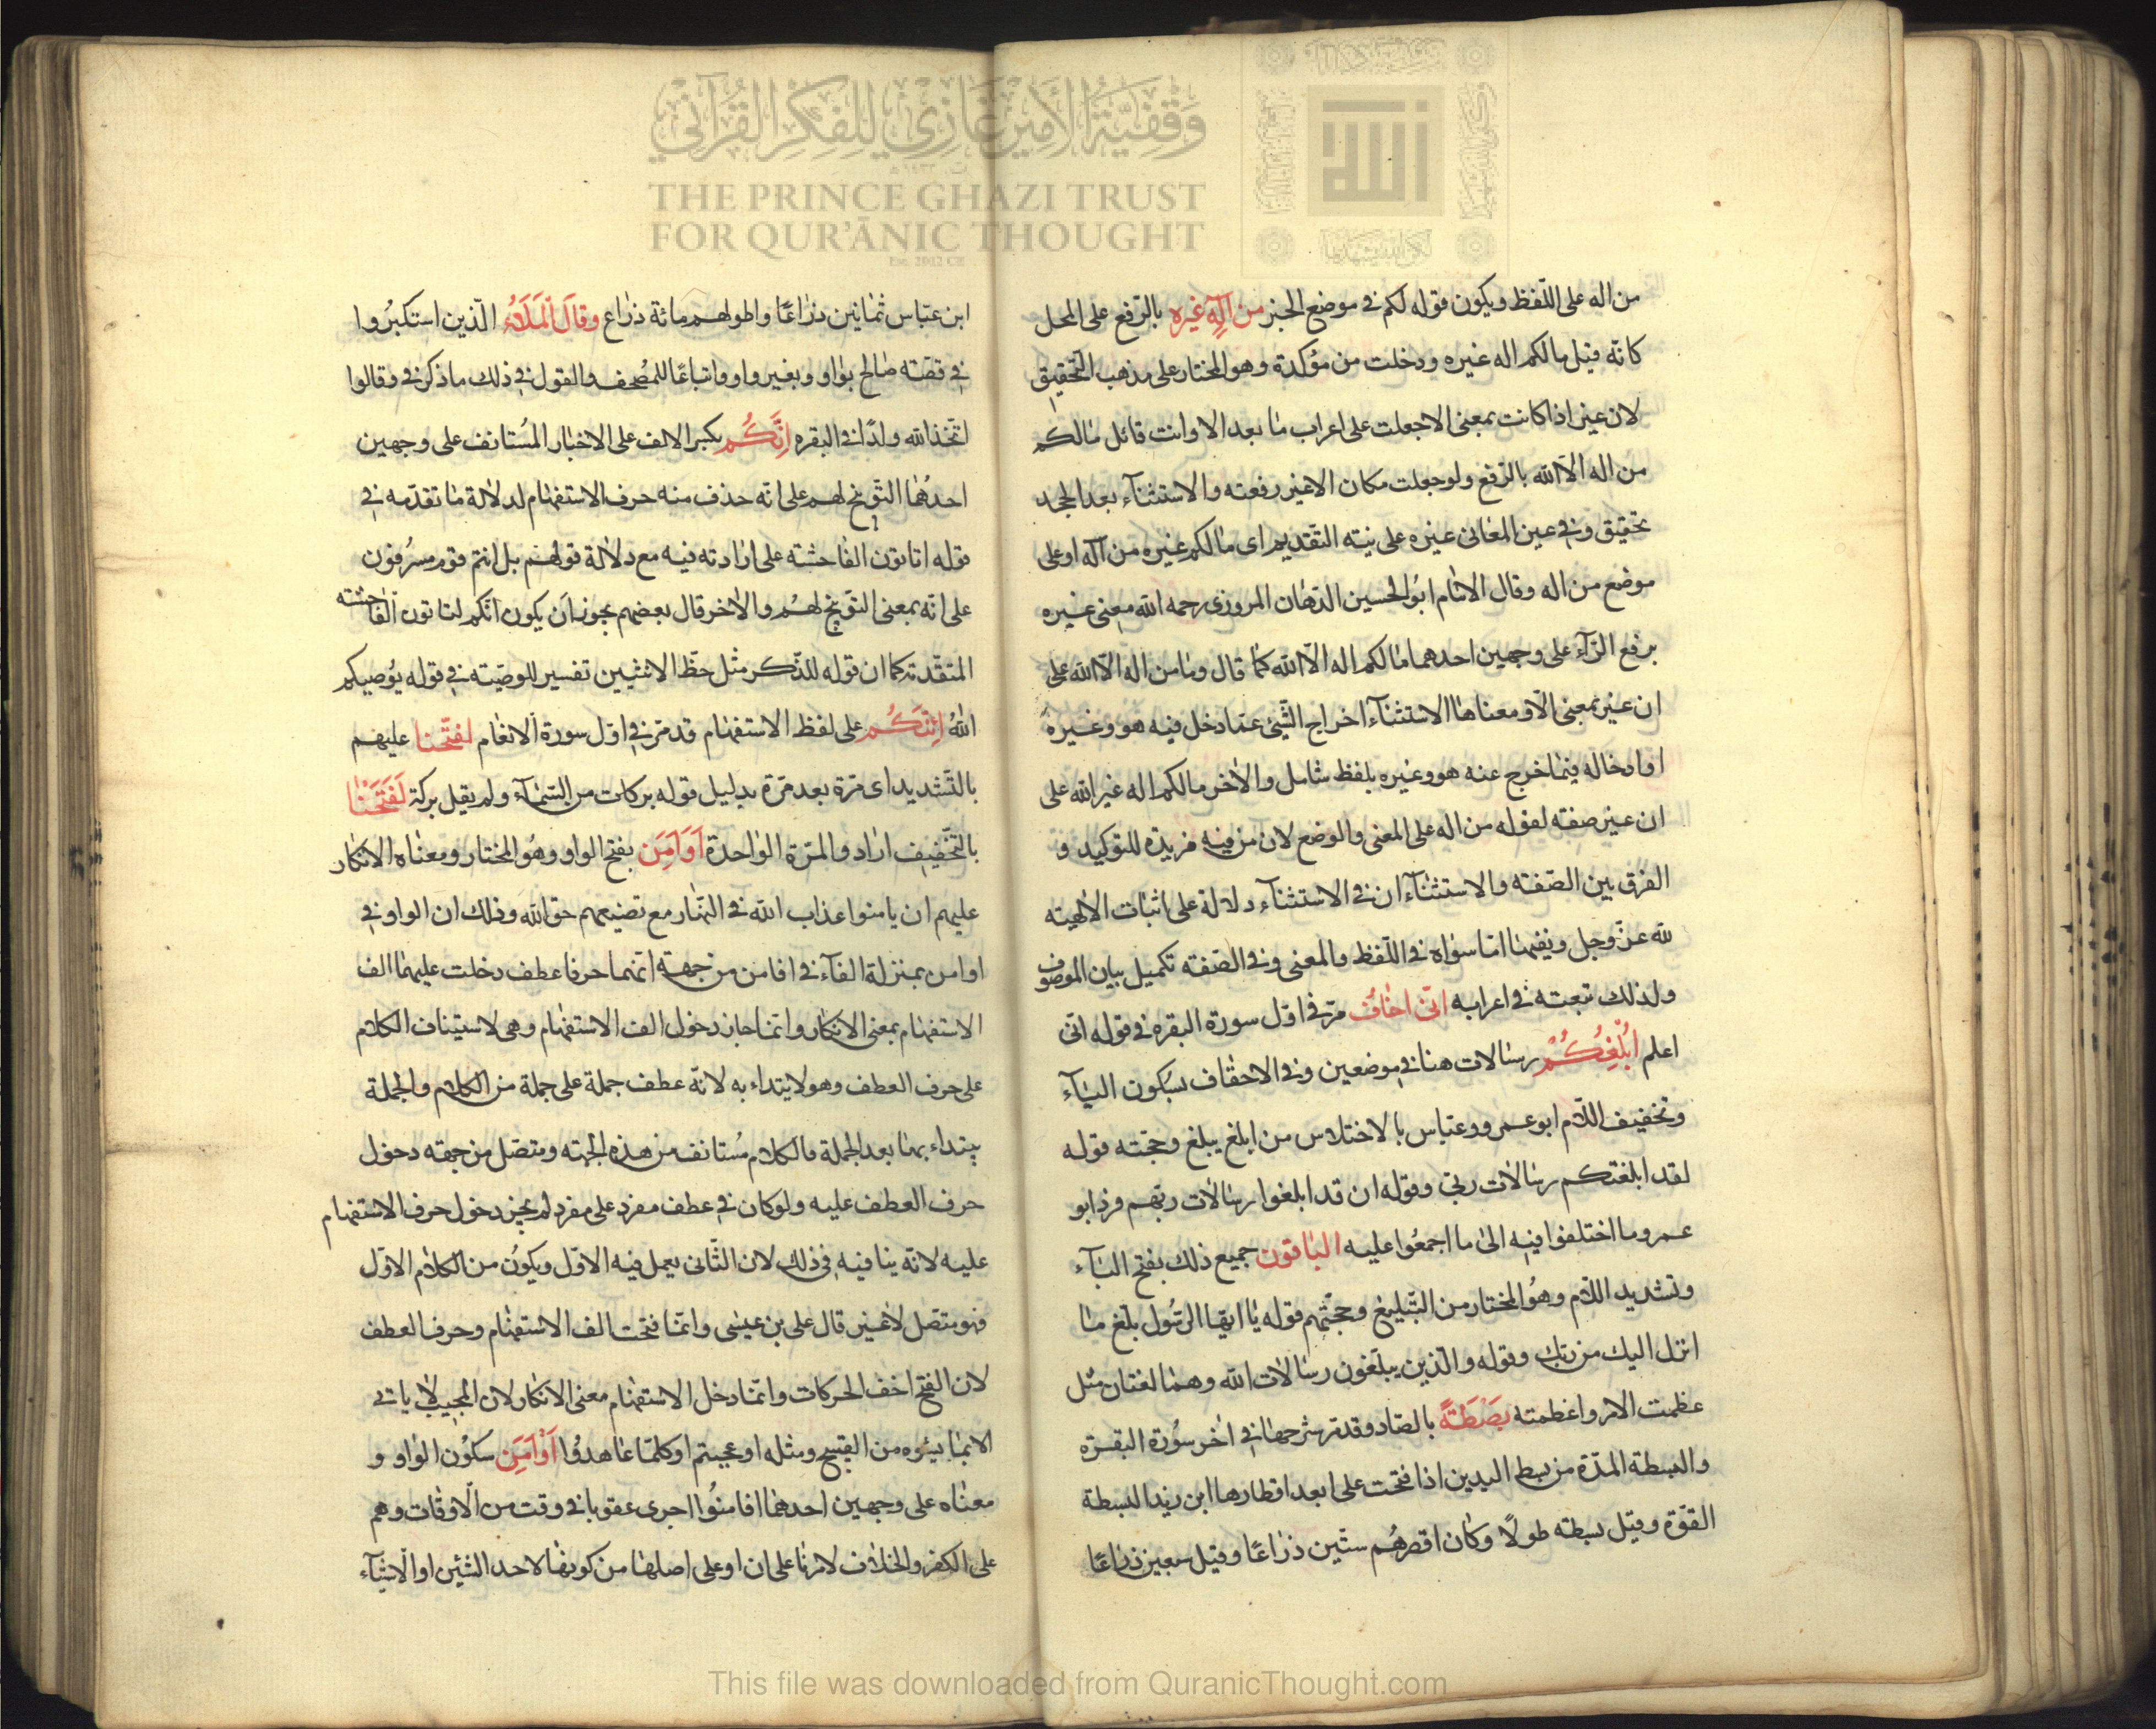 من اله على اللّفظ ويكون قوله لكم في موضع الخبز من اِلٰهٍ غيره بالرّفع على المحل
كانّه قيل مالكم اله غيره ودخلت من مؤكدة وهو المختار على مذهب التّحقيق
لان غير اذا كانت بمعنى الا جعلت على اعراب ما بعد الا وانت قائل مالكم
من اله الّا الله بالرّفع ولو جعلت مكان الا غير رفعته والاستثناء بعد الجحد
تحقيق وفي عين المعاني غيره على نيّته التّقديم اى مالكم غيره من اله او على
موضع من اله وقال الامام ابُو الحسين الدّهان المروزى رحمه الله معنى غيره
برفع الرّآء على وجهين احدهما مالكم اله الّا الله كما قال وما من اله الّا الله على
ان غير بمعنى الّا ومعناها الاستثناء اخراج الشّئ عمّا دخل فيه هو وغيره
او ادخاله فيما خرج عنه هو وغيره بلفظ شامل والاخر مالكم اله غير الله على
ان غير صفته لقوله من اله على المعنى والوضع لان من فيه مزيدة للتوكيد و
الفرق بين الصّفته والاستثناء ان في الاستثنآء دلالة على اثبات الالهيته
لله عزّ وجل ونفيها امّا سواه في اللّفظ والمعنى وفي الصّفته تكميل بيان الموصوف
ولذلك تبعته في اعرابه انّى اخافُ مرّ في اوّل سورة البقره في قوله انّى
اعلم اُبْلِغُكُمْ رسالات هنا في موضعين وفي الاحقاف بسكون البآء
وتخفيف اللّام ابو عمرو وعباس بالاختلاس من ابلغ يبلغ وحجّته قوله
لقد ابلغتكم رسالات ربّى وقوله ان قد ابلغوا رسالات ربّهم فرد ابو
عمرو ما اختلفوا فيه الى ما اجمعُوا عليه الباقون جميع ذلك بفتح البآء
وتشديد اللّام وهُو المختار من التّبليغ وحجّتهم قوله يا ايّها الرّسُول بلّغ ما
انزل اليك من ربّك وقوله والّذين يبلّغون رسالات الله وهما لغتان مثل
عظمت الامر واعظمته بَصْطَةً بالصّاد وقد مرّ شرحها في اخر سُورة البقرة
والبسطة المدّة من بسط اليدين اذا فتحت على ابعد اقطارها ابن زيد البسطة
القوّة وقيل بسطته طولًا وكان اقصرهُم ستّين ذراعًا وقيل سبعين ذراعًا
ابن عبّاس ثمانين ذراعًا واطولهم مائة ذراع وقالَ المَلَاُ الّذين استكبرُوا
في قصّته صالح بواو وبغير واو واتباعًا للمُصحف والقول في ذلك ما ذكر في وقالوا
اتّخذ الله ولدًا في البقره اِنَّكُم بكسر الالف على الاخبار المُستانف على وجهين
احدهُما التّوبيخ لهم على انّه حذف منه حرف الاستفهام لدلالة ما تقدّمه في
قوله اتاتون الفاحشة على ارادته فيه مع دلالة قولهم بل انتم قوم مسرفون
على انّه بمعنى التّوبيخ لهُم والاخر قال بعضهم يجوز ان يكون انّكم لتاتون الفاحشته
المتقدّمته كما ان قوله للذّكر مثل حظّ الانثيين تفسير للوصيّته في قوله يُوصيكم
اللهُ اَئِنَّكُم على لفظ الاستفهام قد مرّ في اوّل سورة الانعام لفتّحنا عليهم
بالتّشديد اى مرّة بعد مرّة بدليل قوله بركات من السّمآء ولم يقل بركة لَفَتَحْنا
بالتّخفيف اراد والمرّة الواحدة اَوَاَمِنَ بفتح الواو وهُو المختار ومعناه الانكار
عليهم ان يامنوا عذاب الله في النّهار مع تضييعهم حق الله وذلك ان الواو في
اوامن بمنزلة الفآء في افامن من جهة انّهما حرفا عطف دخلت عليهما الف
الاستفهام بمعنى الانكار وانّما جاز دخول الف الاستفهام وهى لاستيناف الكلام
على حرف العطف وهو لا يبتداء به لانّه عطف جملة على جملة من الكلام والجملة
يبتداء بها بعد الجملة فالكلام مُستانف من هذه الجهته ومتّصل من جهته دخول
حرف العطف عليه ولو كان في عطف مفرد على مفرد لم يجز دخول حرف الاستفهام
عليه لانّه ينافيه في ذلك لان الثّانى يعمل فيه الاوّل ويكوُن من الكلام الاوّل
فهو متّصل لا غير قال على بن عيسى وانّما فتحت الف الاستفهام وحرف العطف
لان الفتح اخف الحركات وانّما دخل الاستفهام معنى الانكار لان المجيب لا ياتى
الا بما يسُوه من القبيح ومثله او عجبتم اوكلّما عاهدُوا اَوْاَمِنَ سكوُن الواو و
معناه على وجهين احدهما افامنُوا اجرى عقوباتى وقت من الاوقات وهم
على الكفر والخلاف لامرنا على ان او على اصلها من كونها لاحد الشّيئين او الاشيآء
وَقْفِيَّةُ الأَمِيرْ غَازِي لِلْفِكْرِ القُرْآنِي
THE PRINCE GHAZI TRUST
FOR QUR'ĀNIC THOUGHT
Est. 2012 CE
This file was downloaded from QuranicThought.com